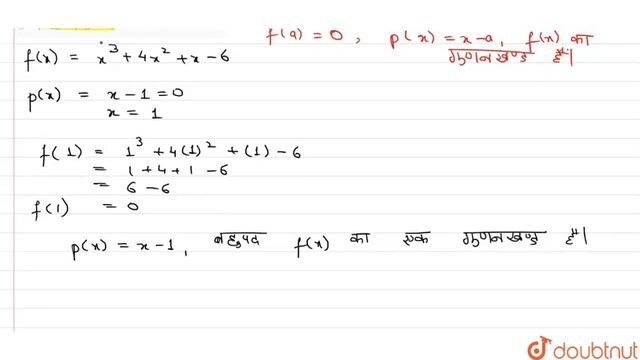 f(a) = 0, p(x) = x-a, f(x) का
गुणनखण्ड है।
f(x) = x³ + 4x² + x - 6
p(x) = x - 1 = 0
x = 1
f(1) = 1³ + 4(1)² + (1) - 6
= 1 + 4 + 1 - 6
= 6 - 6
f(1) = 0
p(x) = x - 1, बहुपद f(x) का एक गुणनखण्ड है।
doubtnut